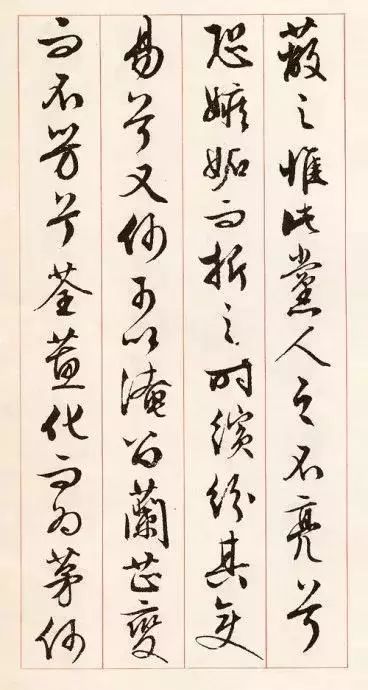 薆之惟此黨人之不亮兮
恐嫉妬而折之時繽紛其變
易兮又何可以淹留蘭芷變
而不芳兮荃蕙化而為茅何